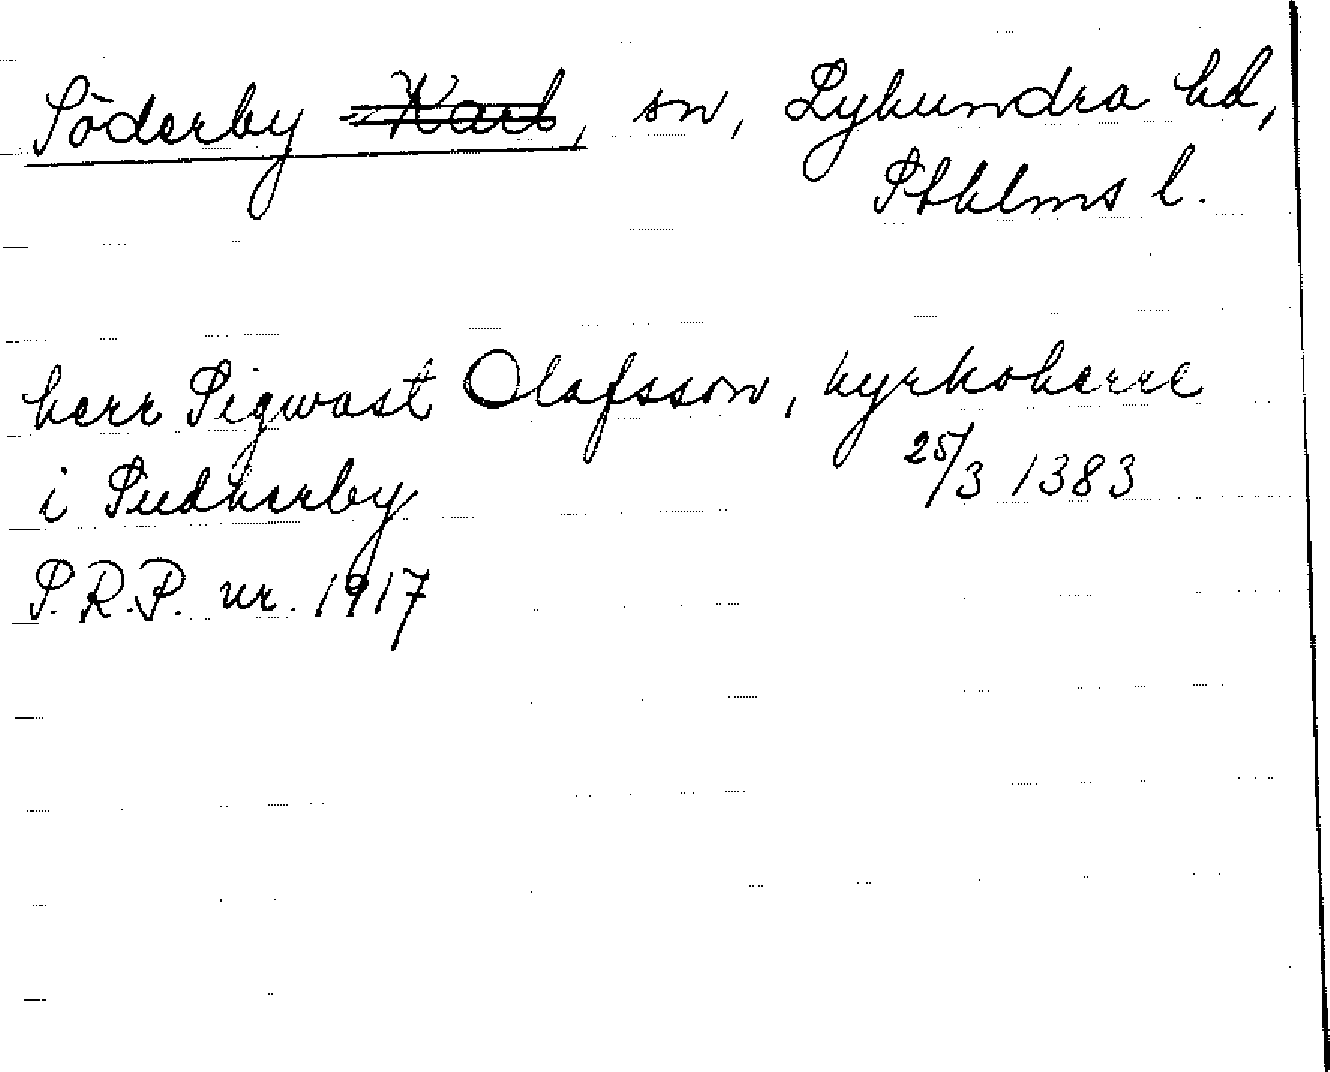 Söderby -Karl, sn, Lyhundra hd,
Sthlms l.
herr Sigwast Olafsson, kyrkoherre
i Sudherby 25/3 1383
S.R.P. nr. 1917